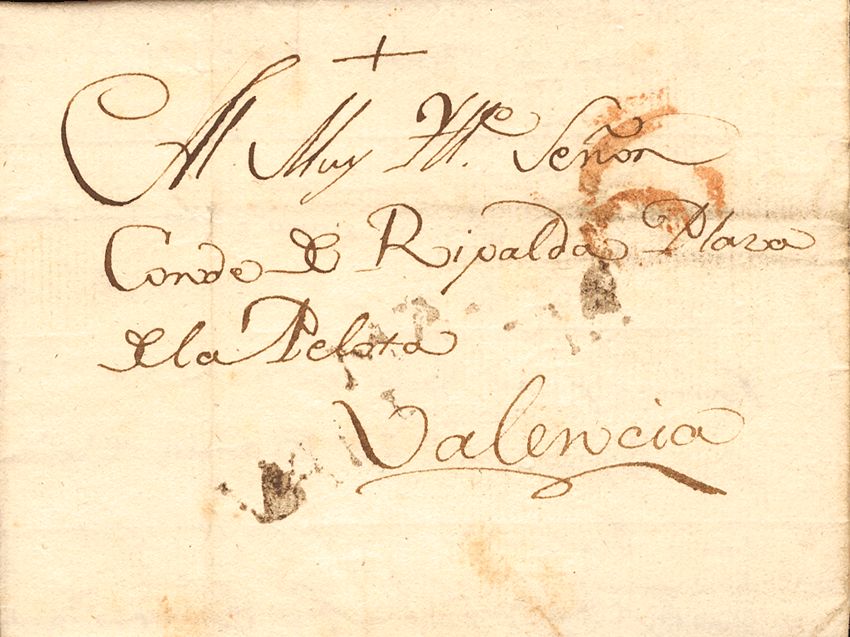 +
Al Muy Ill.e Señor
Conde de Ripalda Plaza
de la Pelota
Valencia